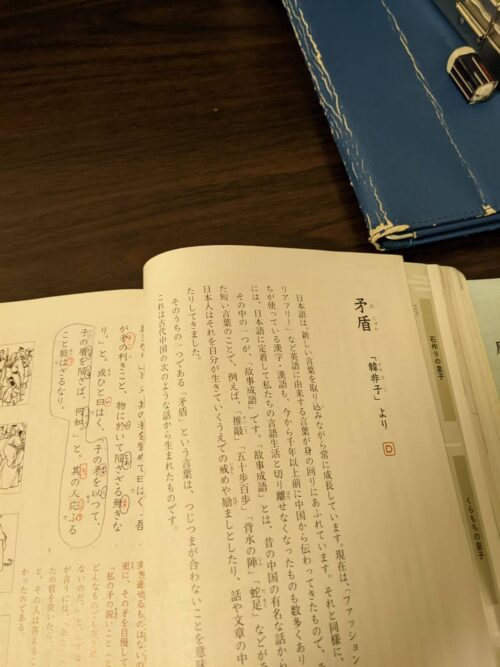 矛盾
「韓非子」より
D
日本語は、新しい言葉を取り込みながら常に成長しています。現在は、「ファッション
リアフリー」など英語に由来する言葉が身の回りにあふれています。それと同様に、
ちが使っている漢字・漢語も、今から千年以上前に中国から伝わってきたもので、
には、日本語に定着して私たちの言語生活と切り離せなくなったものも数多くあり
その中の一つが、「故事成語」です。「故事成語」とは、昔の中国の有名な話から
た短い言葉のことで、例えば、「推敲」「五十歩百歩」「背水の陣」「蛇足」などが
日本人はそれを自分が生きていくうえでの戒めや励ましとしたり、話や文章の中
たりしてきました。
そのうちの一つである「矛盾」という言葉は、つじつまが合わないことを意味
これは古代中国の次のような話から生まれたものです。
が矛の利きこと、物に於いて陥さざる無きな
り。」と。或ひと曰はく、「子の矛を以つて、
子の盾を陥さば、何如。」と。其の人応ふる
こと能はざるなり。
突き通せるものはないの
更に、その矛を自慢して
「私の矛の鋭いことって
どんなものでも突き通
ないのだ。」と。する
が言うには、「あな
たの盾を突いた
と、その人は答える
かったのである。
石作りの皇子
くらもちの皇子